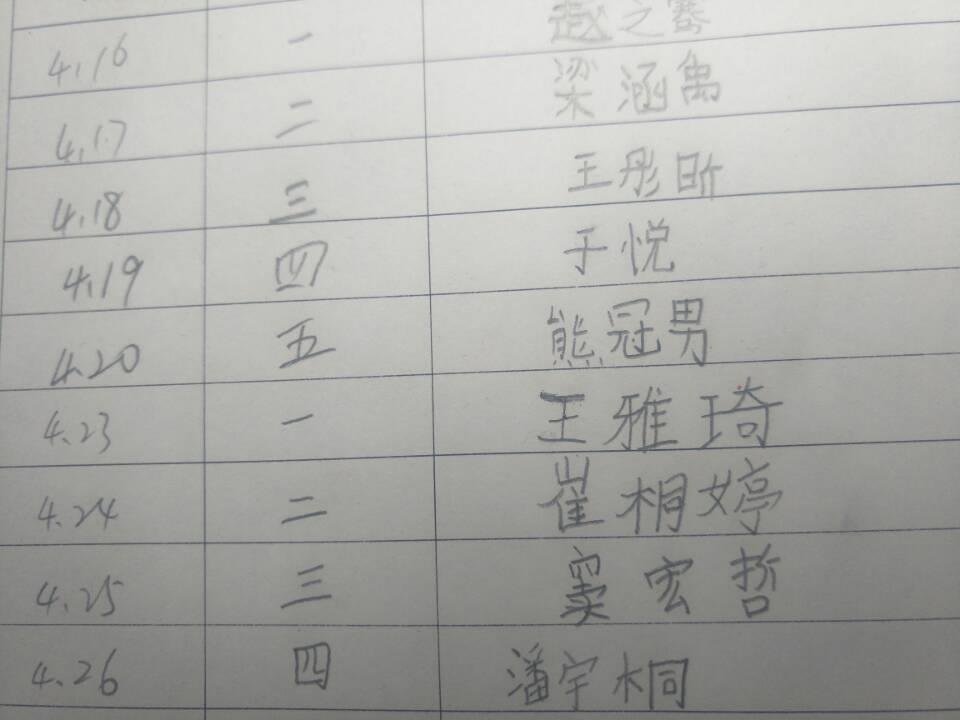 4.16 一 赵之骞
4.17 二 梁涵禹
4.18 三 王彤昕
4.19 四 于悦
4.20 五 熊冠男
4.23 一 王雅琦
4.24 二 崔桐婷
4.25 三 窦宏哲
4.26 四 潘宇桐